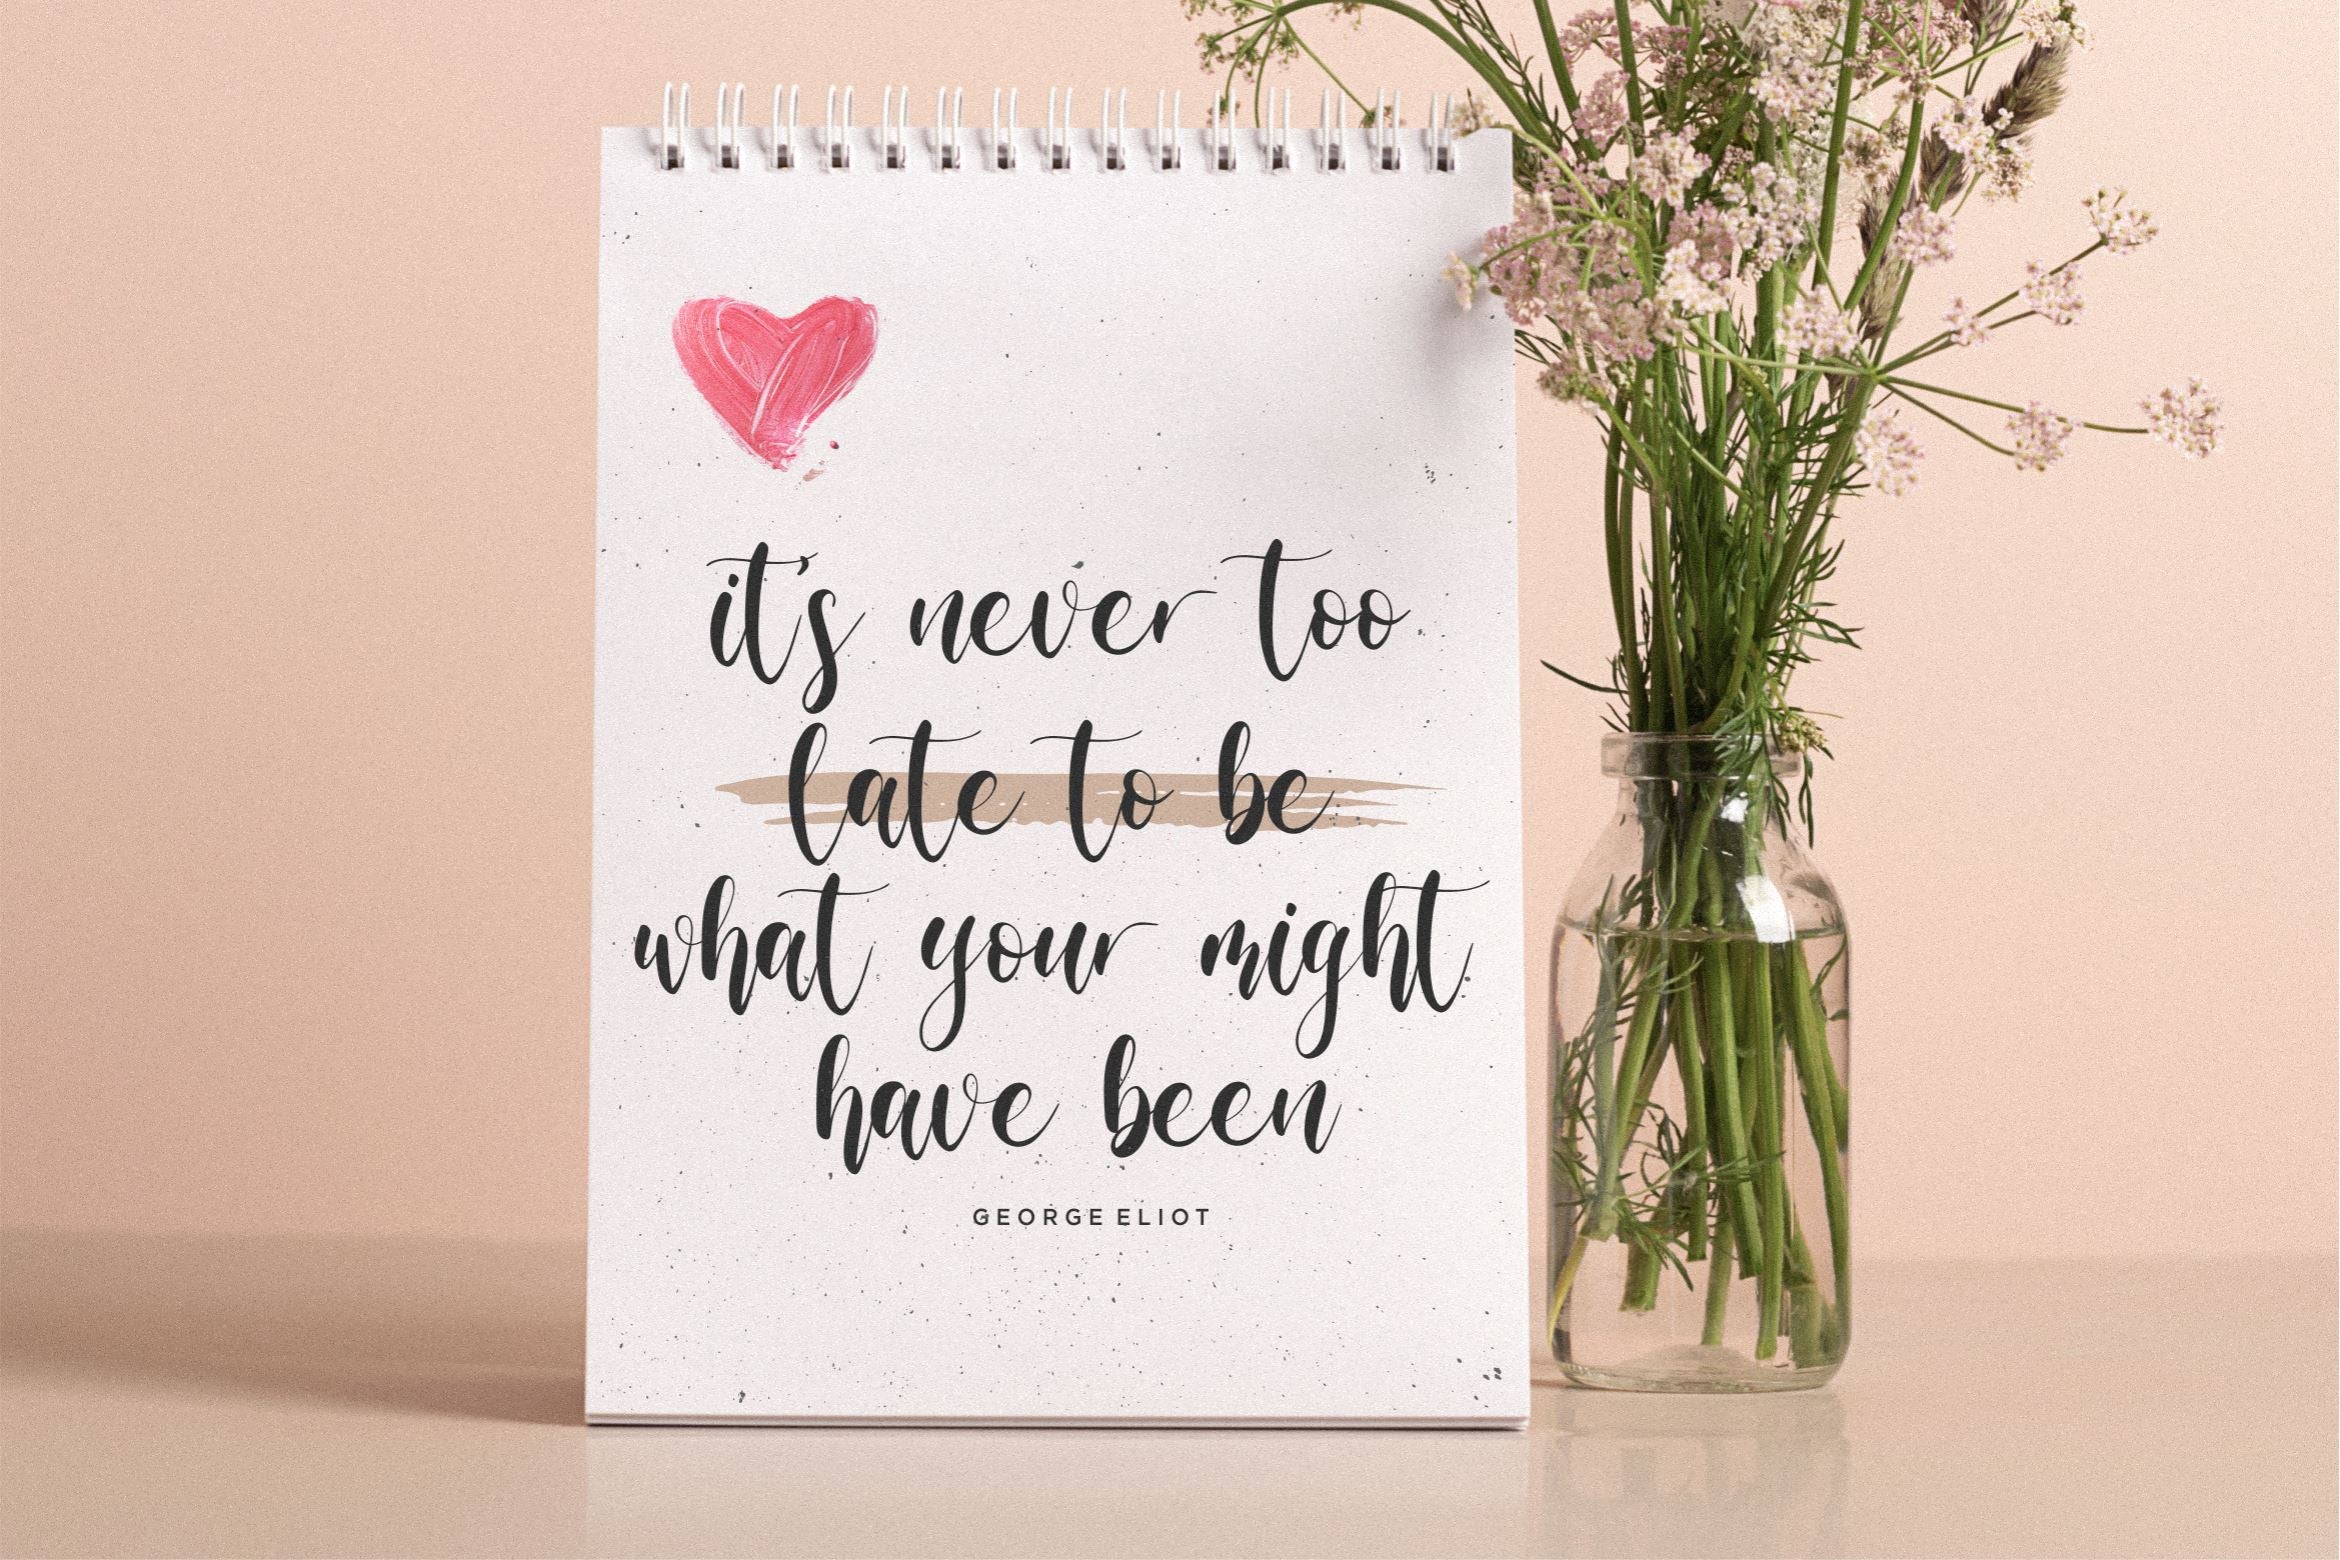 it's never too
late to be
what your might
have been
GEORGE ELIOT